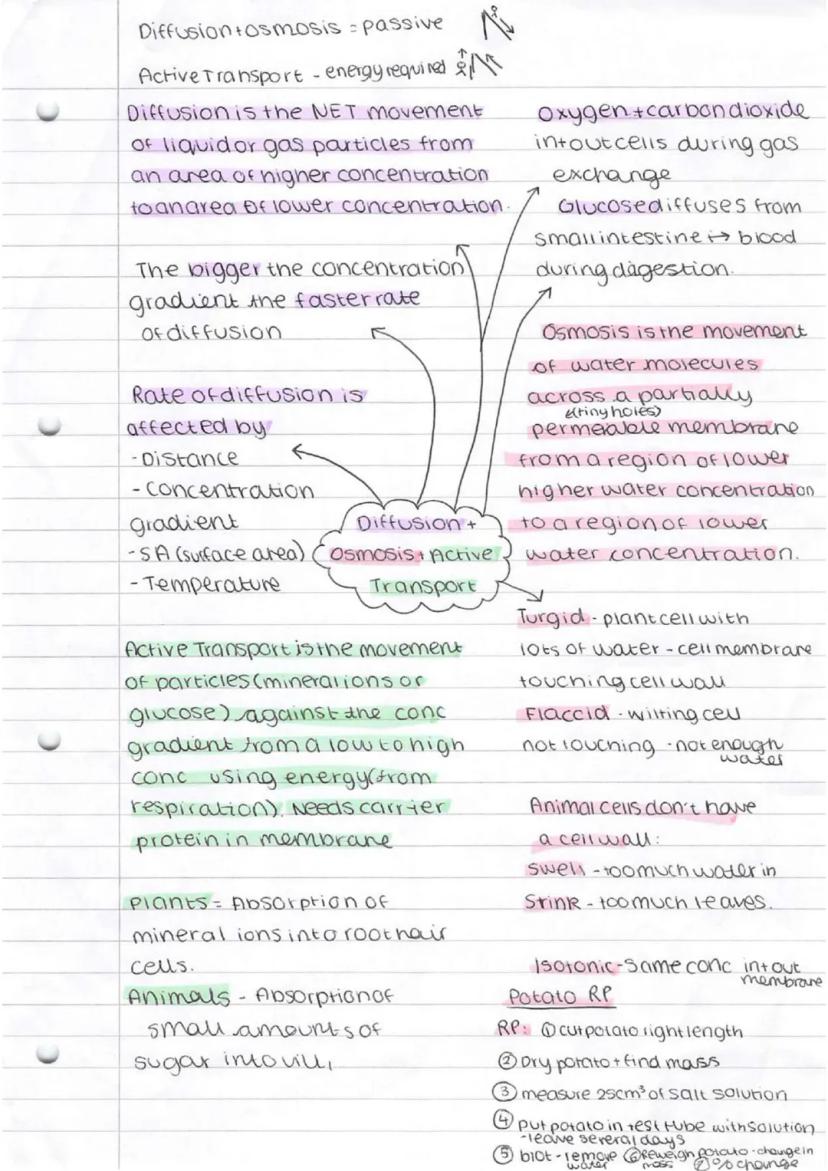 Diffusion + osmosis = passive
Active Transport - energy required
Diffusion is the NET movement
of liquid or gas particles from
an area of higher concentration
to an area of lower concentration.
The bigger the concentration
gradient the faster rate
of diffusion
Rate of diffusion is
affected by
- Distance
- Concentration
gradient
- SA (surface area)
- Temperature
Diffusion +
Osmosis + Active
Transport
Active Transport is the movement
of particles (mineral ions or
glucose) against the conc
gradient from a low to high
conc using energy (from
respiration). Needs carrier
protein in membrane
Plants = Absorption of
mineral ions into root hair
cells.
Animals - Absorption of
small amounts of
sugar into villi
Oxygen + carbon dioxide
in + out cells during gas
exchange
Glucose diffuses from
small intestine → blood
during digestion.
Osmosis is the movement
of water molecules
across a partially
(tiny holes)
permeable membrane
from a region of lower
higher water concentration
to a region of lower
water concentration.
Turgid - plant cell with
lots of water - cell membrane
touching cell wall
Flaccid - wilting cell
not touching - not enough
water
Animal cells don't have
a cell wall:
Swell - too much water in
Srink - too much leaves.
Isotonic - Same conc in + out
membrane
Potato RP
RP: ① cut potato right length
② Dry potato + find mass
③ measure 25cm³ of salt solution
④ put potato in test tube with solution
- leave several days
⑤ blot - remove water ⑥ Reweigh potato - change in
mass ⑦ % change